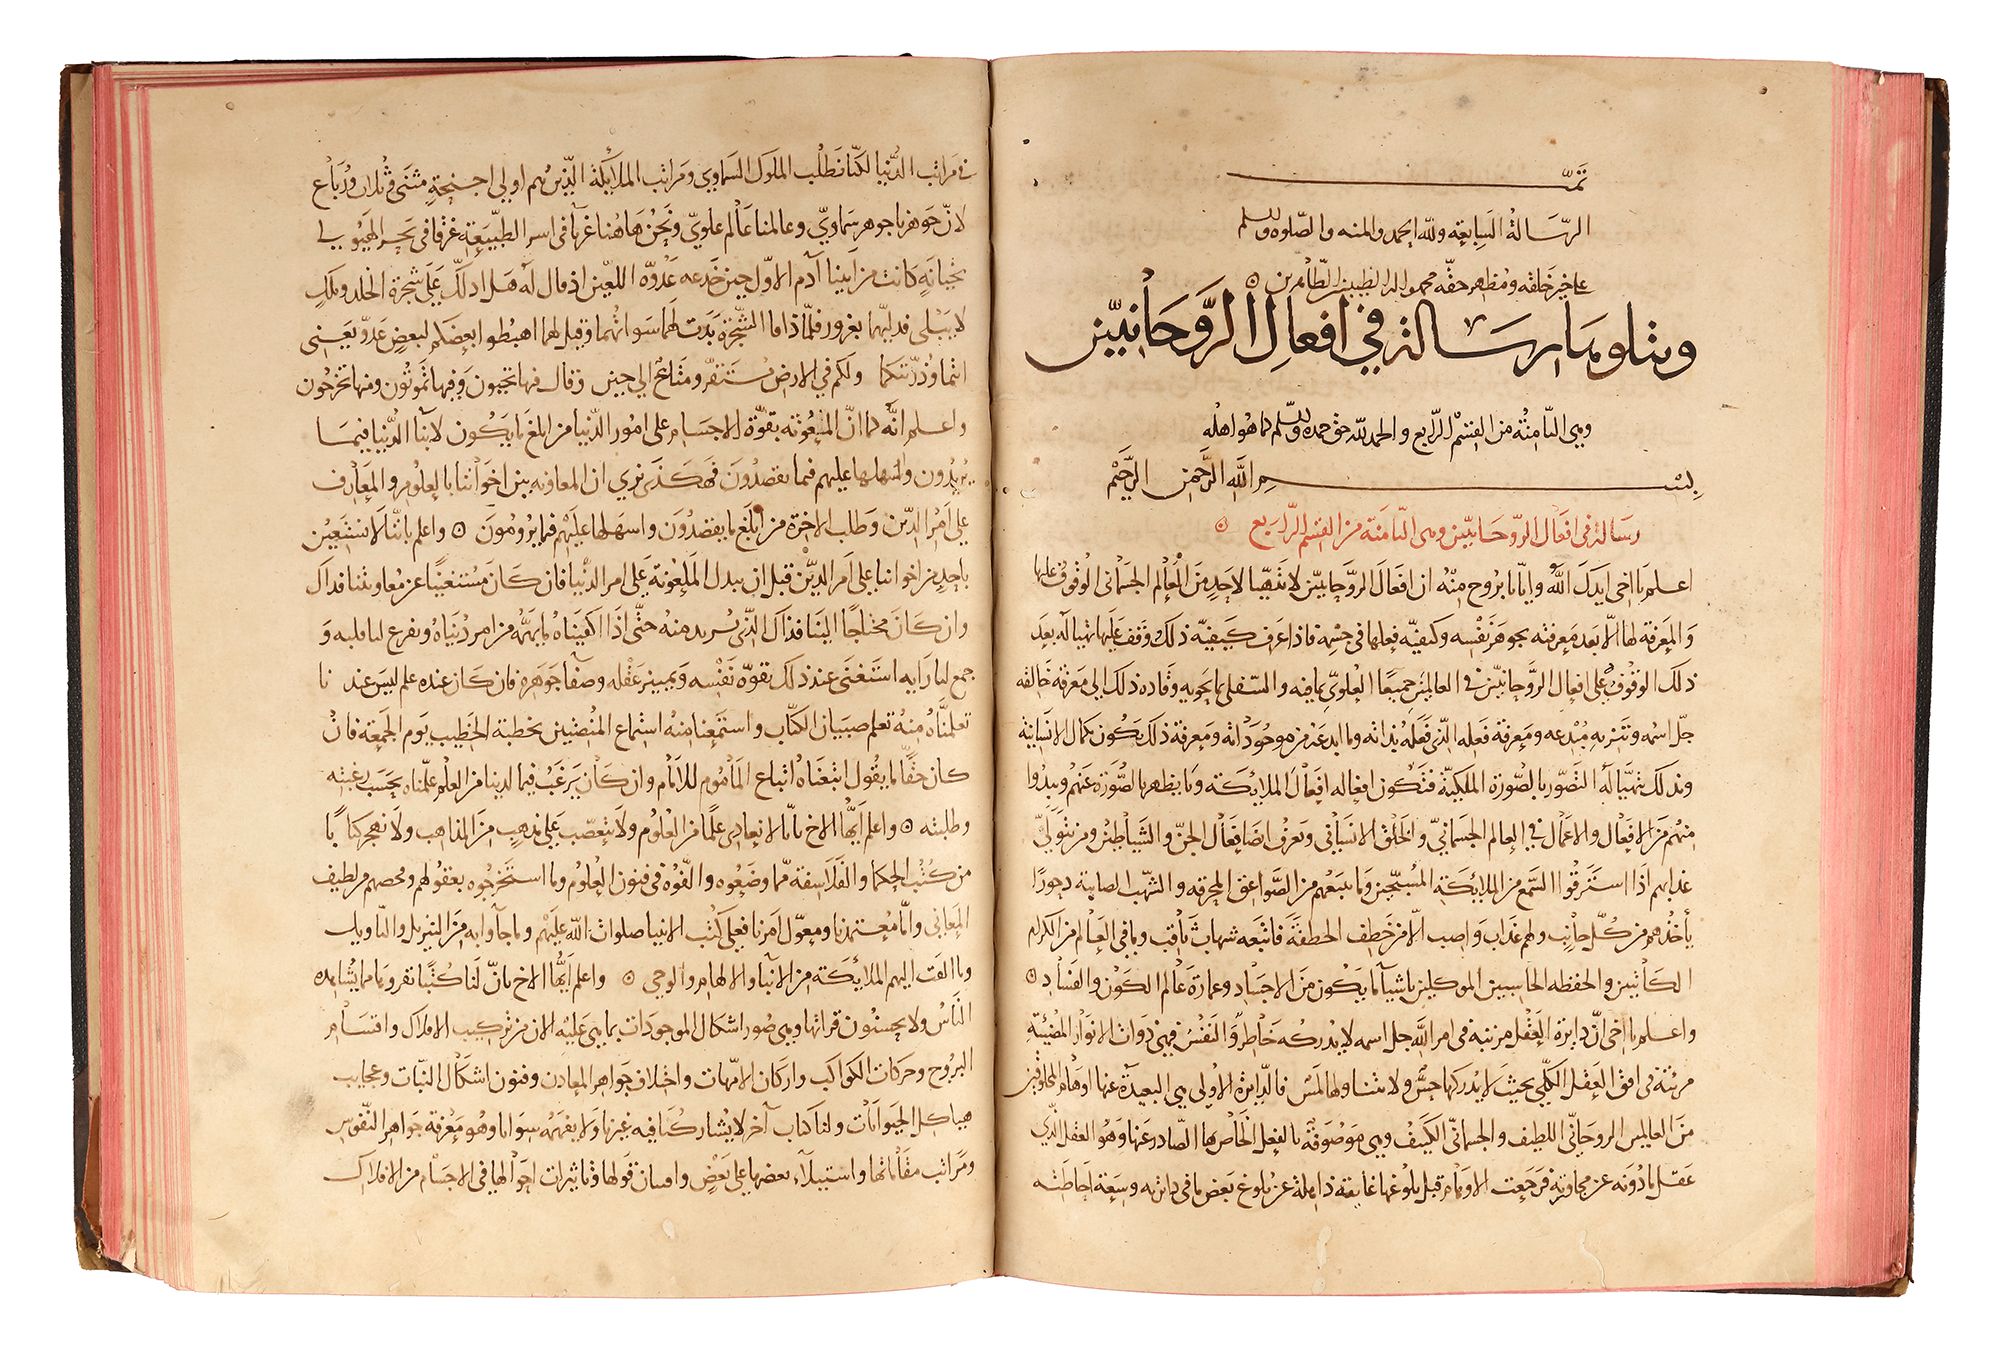 تمت
الرسالة السابعة ولله الحمد والمنه والصلوه والسلم
على خير خلقه ومظهر حقه محمد واله الطيبين الطاهرين
ويتلوها رسالة في افعال الروحانيين
وهي الثامنة من القسم الرابع والحمد لله حق حمده كما هو اهله
بسم الله الرحمن الرحيم
رسالة في افعال الروحانيين وهي الثامنة من القسم الرابع
اعلم يا اخي ايدك الله وايانا بروح منه ان افعال الروحانيين لا تتهيا لاحد من العالم الجسماني الوقوف عليها
والمعرفة لها الا بعد معرفته بجوهر نفسه وكيفيه فعلها في جسمه فاذا عرف كيفية ذلك وقف عليها تهيا له بعد
ذلك الوقوف على افعال الروحانيين في العالمين جميعا العلوي بما فيه والسفلي بما يحويه وقاده ذلك الى معرفة خالقه
جل اسمه وتنزيه مبدعه ومعرفة فعله الذي فعله بذاته وما ابدعه من موجوداته ومعرفة ذلك يكون بكمال الانسانية
وبذلك يتهيا له التصور بالصورة الملكية فتكون افعاله افعال الملايكة وما يظهر بالصورة عنهم ويبدوا
منهم من الافعال والاعمال في العالم الجسماني والخلق الانساني ويعرف ايضا افعال الجن والشياطين ومن يتولى
عذابهم اذا استرقوا السمع من الملايكة المسبحين وما يتبعهم من الصواعق المحرقه والشهب الصايبة دحورا
ياخذهم من كل جانب ولهم عذاب واصب الا من خطف الخطفة فاتبعه شهاب ثاقب وما في العالم من الكرام
الكاتبين والحفظه الحاسبين الموكلين باشيا ما يكون من الاجساد وعمارة عالم الكون والفساد
واعلم يا اخي ان دايرة العقل مرتبة في امر الله جل اسمه لا يدركه خاطر والنفس فهي ذوات الانوار المضيئة
مرتبة في افق العقل الكلي بحيث لا يدركها حس ولا يتناولها لمس فالدايرة الاولى هي البعيدة عنها اوهام المخلوقين
من العالمين الروحاني اللطيف والجسماني الكثيف وهي موصوفة بالفعل الخاص بها الصادر عنها وهو العقل الذي
عقل ما دونه عن مجاوزته فرجعت الاوهام قبل بلوغها غايته ذاهلة عن بلوغ بعض ما في دايرته وسعة احاطته
في مراتب الدنيا لكنا نطلب الملوك السماوي ومراتب الملايكة الذين هم اولي اجنحة مثنى وثلاث ورباع
لان جوهرنا جوهر سماوي وعالمنا عالم علوي ونحن هاهنا غربا في اسر الطبيعة غرقا في بحر الهيولى
بخيانة كانت من ابينا آدم الاول حين خدعه عدوه اللعين اذ قال له هل ادلك على شجرة الخلد وملك
لا يبلى فدلاهما بغرور فلما ذاقا الشجرة بدت لهما سواتهما وقيل لهما اهبطوا بعضكم لبعض عدو يعني
انتما وذريتكما ولكم في الارض مستقر ومتاع الى حين وقال فيها تحيون وفيها تموتون ومنها تخرجون
واعلم انه لما ان المعونة بقوة الاجسام على امور الدنيا من ابلغ ما يكون لابنا الدنيا فيما
يريدون واسهلها عليهم فيما يقصدون فهكذى نرى ان المعاونه بين اخواننا بالعلوم والمعارف
على امر الدين وطلب الاخرة من ابلغ ما يقصدون واسهلها عليهم فيما يرومون واعلم باننا لا نستعين
باحد من اخواننا على امر الدين قبل ان يبدل المعونة على امر الدنيا فان كان مستغنيا عن معاونتنا فذاك
وان كان محتاجا الينا فذاك الذي نريد منه حتى اذا اكفيناه ما يهمه من امر دنياه وتفرغ لنا قلبه و
جمع لنا رايه استغنى عند ذلك بقوة نفسه وتمييز عقله وصفا جوهره فان كان عنده علم ليس عند نا
تعلمناه منه تعلم صبيان الكتاب واستمعنا منه استماع المنصتين بخطبة الخطيب يوم الجمعة فان
كان حقا ما يقول اتبعناه اتباع المأموم للامام وان كان يرغب فيما لدينا من العلم علمناه بحسب رغبته
وطلبته واعلم ايها الاخ بانا لا نعادي علما من العلوم ولا نتعصب على مذهب من المذاهب ولا نهجر كتابا
من كتب الحكما والفلاسفة مما وضعوه والفوه في فنون العلوم وما استخرجوه بعقولهم وفحصهم من لطيف
المعاني واما معتمدنا ومعول امرنا فعلى كتب الانبيا صلوات الله عليهم وما جآوا به من التنزيل والتاويل
وما القت اليهم الملائكة من الانبا والالهام والوحي واعلم ايها الاخ بان لنا كتبا نقروها مما يشاهده
الناس ولا يحسنون قراتها وهي صور اشكال الموجودات بما هي عليه الان من تركيب الافلاك واقسام
البروج وحركات الكواكب واركان الامهات واختلاف جواهر المعادن وفنون اشكال النبات وعجايب
هياكل الحيوانات ولنا كتاب آخر لا يشاركنا فيه غيرنا ولا يفهمه سوانا وهو معرفة جواهر النفوس
ومراتب مقاماتها واستيلآء بعضها على بعض وافتنان قواها وتاثيرات احوالها في الاجسام من الافلاك